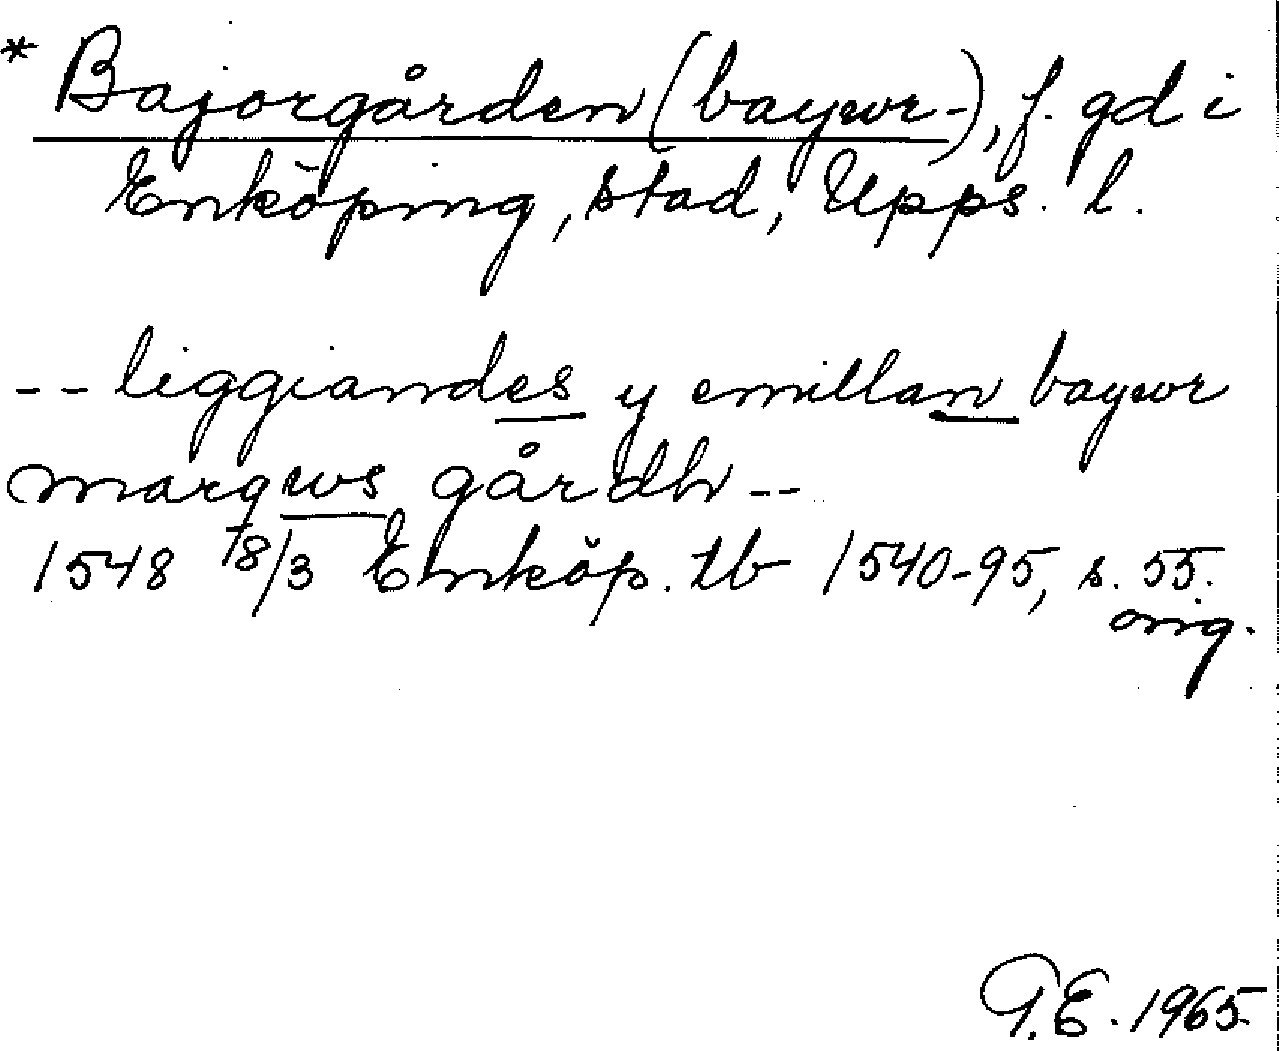 * Bajorgården (baywr-), f. gd i
Enköping, stad, Upps. l.
-- liggiandes y emillan baywr
marqws gårdh --
1548 18/3 Enköp. tb 1540-95, s. 55.
orig.
G.E. 1965